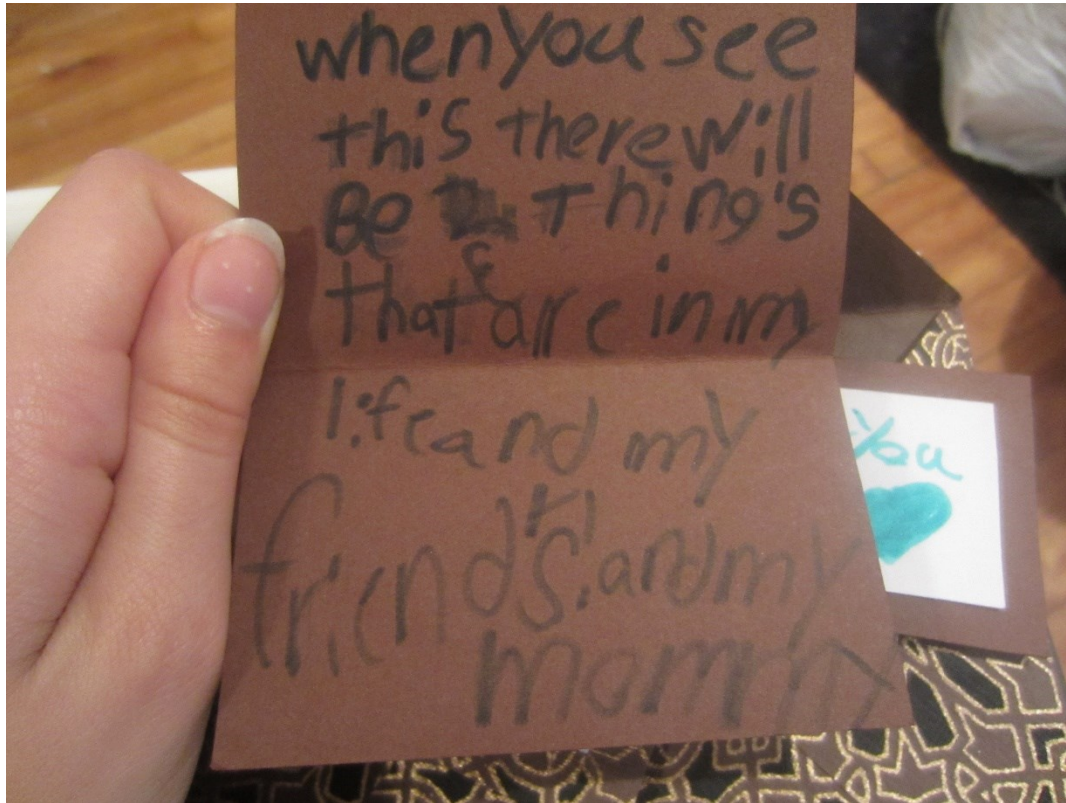 when you see
this there will
Be Thing's
that are in my
life and my
friend's! and my
mommy
you